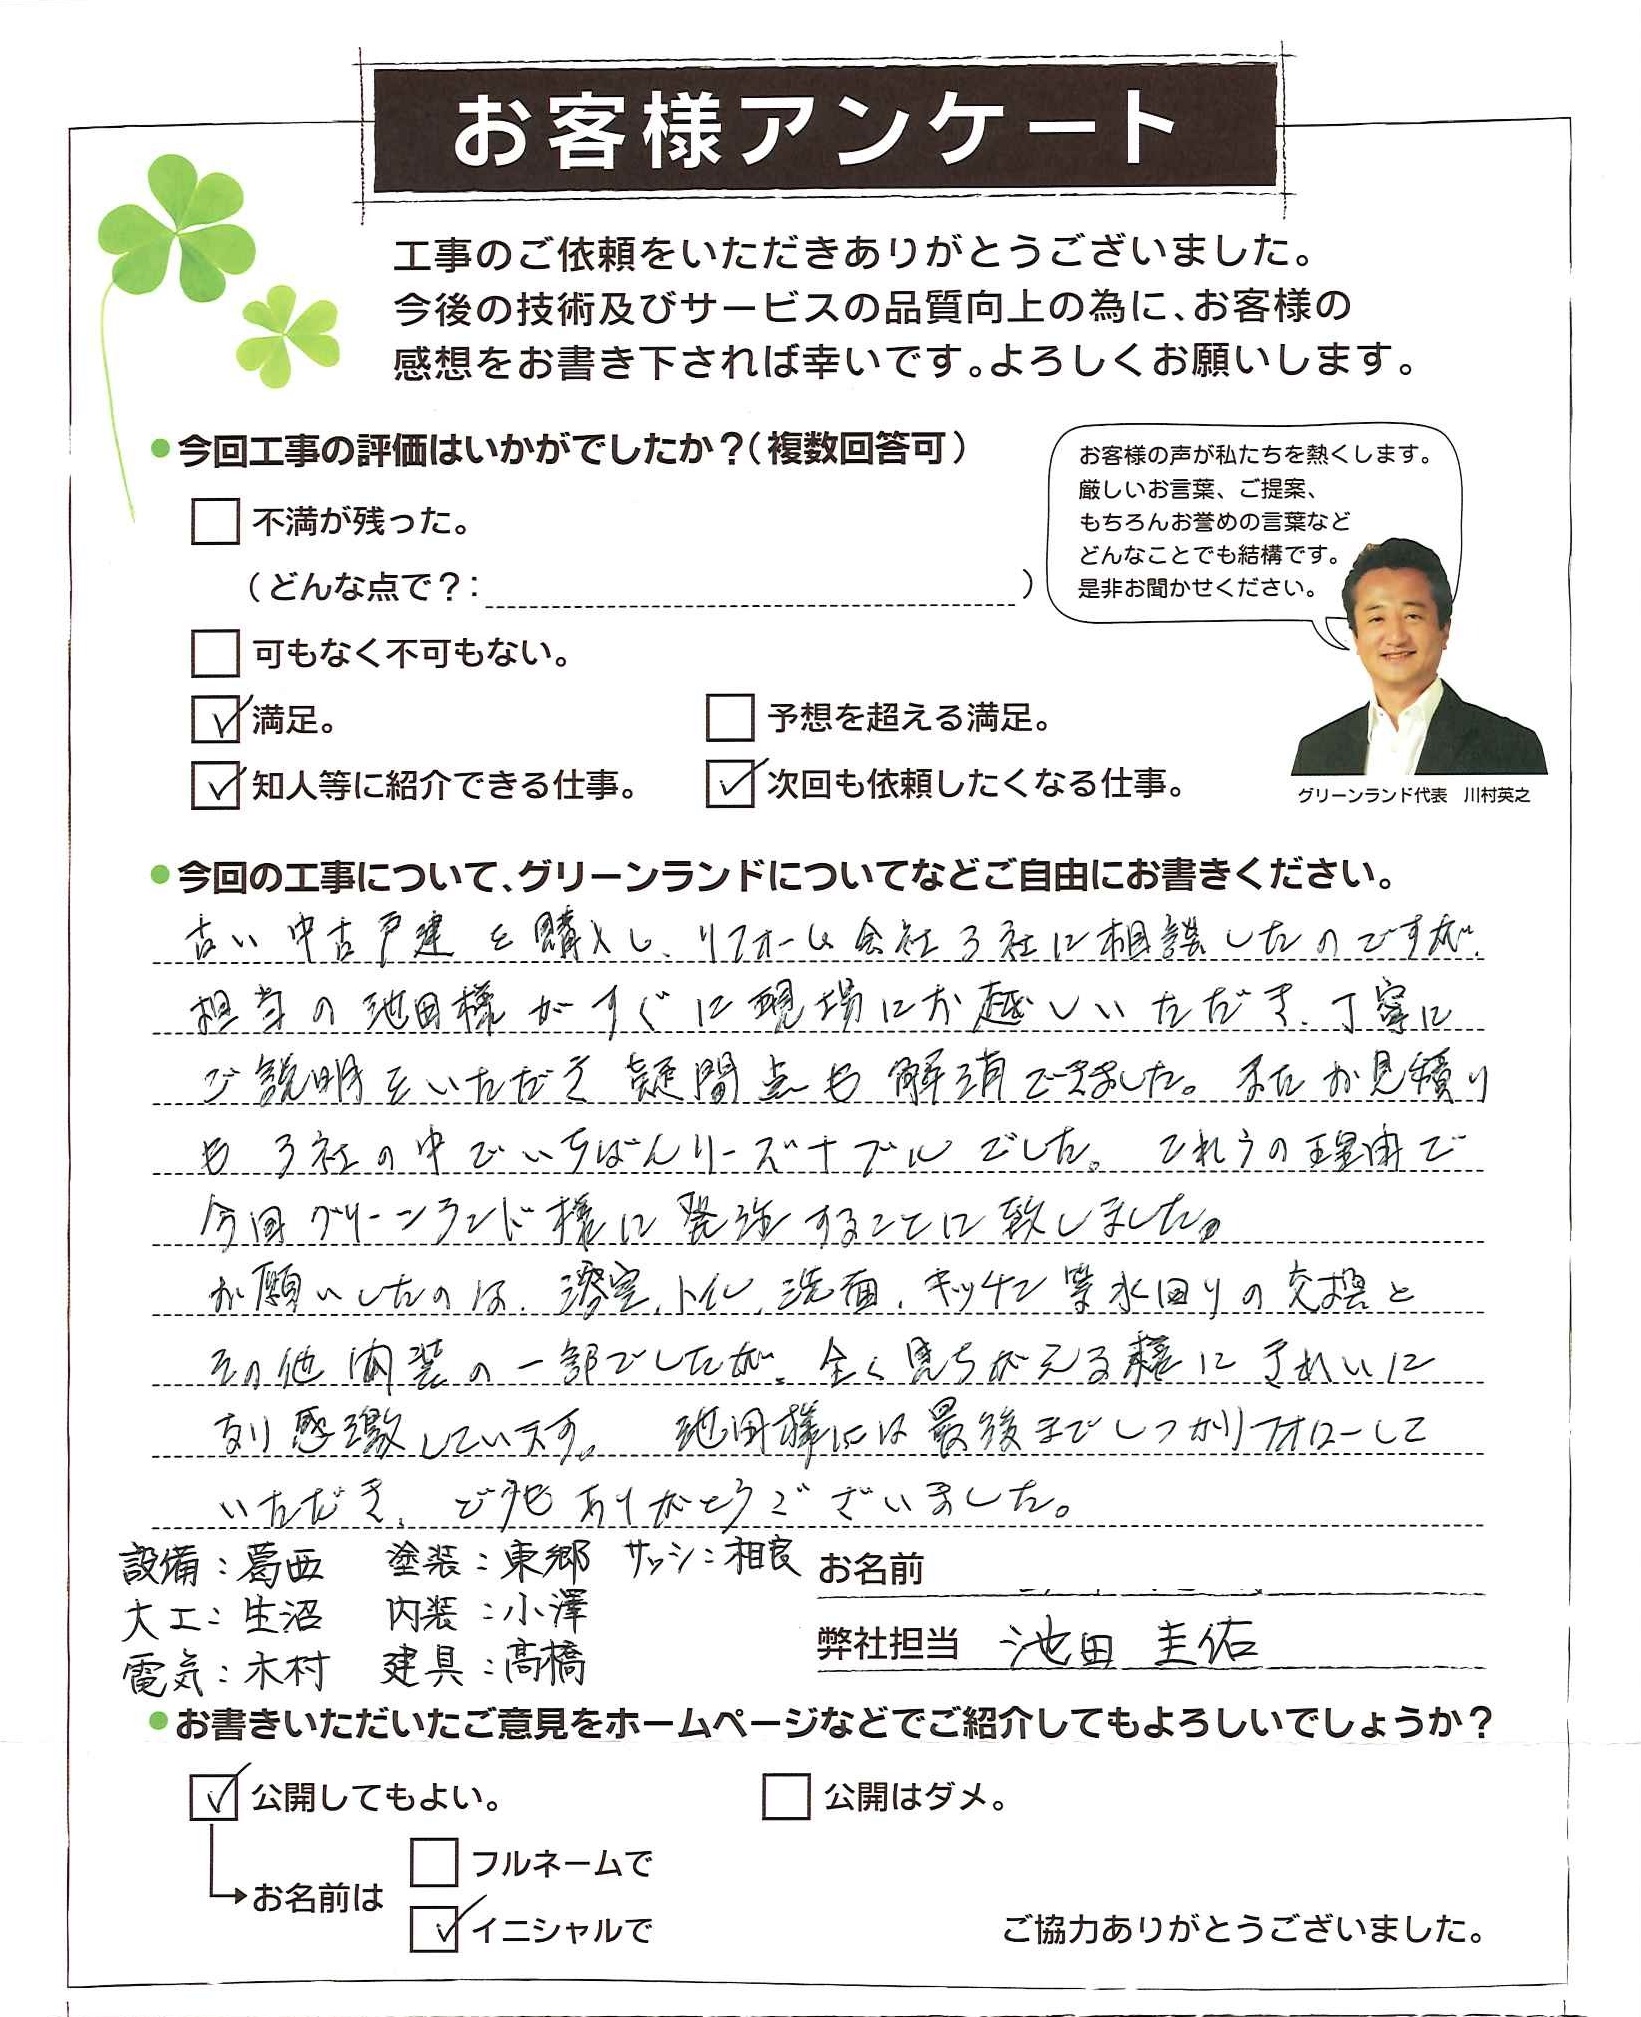 お客様アンケート
工事のご依頼をいただきありがとうございました。
今後の技術及びサービスの品質向上の為に、お客様の
感想をお書き下されば幸いです。よろしくお願いします。
●今回工事の評価はいかがでしたか？（複数回答可）
不満が残った。
（どんな点で？：　　　　）
可もなく不可もない。
✓満足。　予想を超える満足。
✓知人等に紹介できる仕事。　✓次回も依頼したくなる仕事。
お客様の声が私たちを熱くします。
厳しいお言葉、ご提案、
もちろんお誉めの言葉など
どんなことでも結構です。
是非お聞かせください。
グリーンランド代表　川村英之
●今回の工事について、グリーンランドについてなどご自由にお書きください。
古い中古戸建を購入し、リフォーム会社3社に相談したのですが、
担当の池田様がすぐに現場にお越しいただき、丁寧に
ご説明をいただき疑問点も解消できました。またお見積り
も3社の中でいちばんリーズナブルでした。これらの理由で
今回グリーンランド様に発注することに致しました。
お願いしたのは、浴室、トイレ、洗面、キッチン等水回りの交換と
その他内装の一部でしたが、全く見ちがえる様にきれいに
なり感激しています。　池田様には最後までしっかりフォローして
いただき、ありがとうございました。
設備：葛西　塗装：東郷　サッシ：相良
大工：生沼　内装：小澤
電気：木村　建具：高橋
お名前
弊社担当　池田 圭佑
●お書きいただいたご意見をホームページなどでご紹介してもよろしいでしょうか？
✓公開してもよい。　公開はダメ。
お名前は
フルネームで
✓イニシャルで
ご協力ありがとうございました。